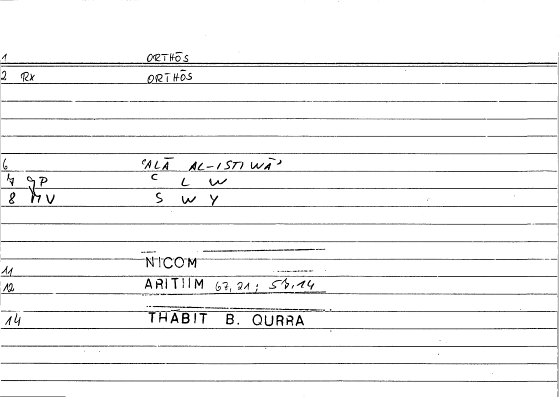 1 ORTHŌS
2 Rx ORTHŌS
6 ʿALĀ AL-ISTIWĀʾ
7 gP C L W
8 MV S W Y
11 NICOM
12 ARITIIM 62,21;
14 THĀBIT B. QURRA